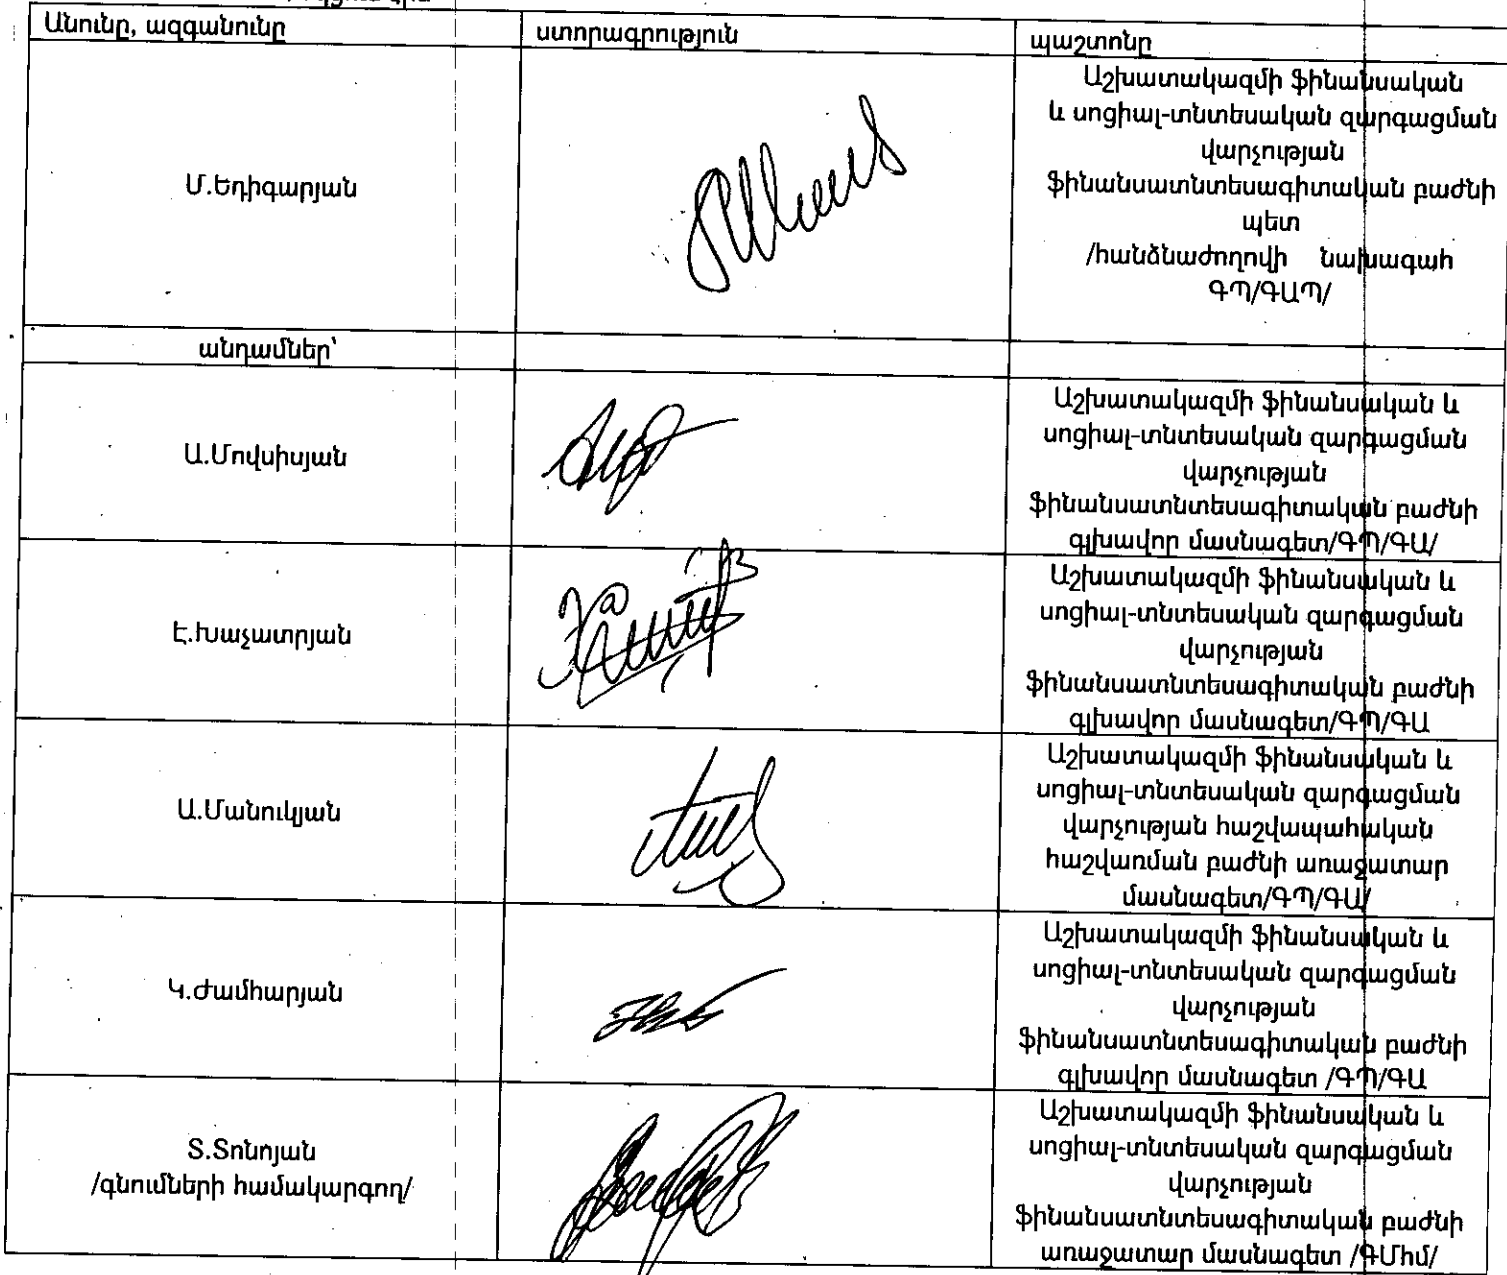 Անունը, ազգանունը
ստորագրություն
պաշտոնը
Մ.Եդիգարյան
Աշխատակազմի ֆինանսական
և սոցիալ-տնտեսական զարգացման
վարչության
ֆինանսատնտեսագիտական բաժնի
պետ
/հանձնաժողովի նախագահ
ԳՊ/ԳԱՊ/
անդամներ՝
Ա.Մովսիսյան
Աշխատակազմի ֆինանսական և
սոցիալ-տնտեսական զարգացման
վարչության
ֆինանսատնտեսագիտական բաժնի
գլխավոր մասնագետ/ԳՊ/ԳԱ/
Է.Խաչատրյան
Աշխատակազմի ֆինանսական և
սոցիալ-տնտեսական զարգացման
վարչության
ֆինանսատնտեսագիտական բաժնի
գլխավոր մասնագետ/ԳՊ/ԳԱ
Ա.Մանուկյան
Աշխատակազմի ֆինանսական և
սոցիալ-տնտեսական զարգացման
վարչության հաշվապահական
հաշվառման բաժնի առաջատար
մասնագետ/ԳՊ/ԳԱ/
Կ.Ժամհարյան
Աշխատակազմի ֆինանսական և
սոցիալ-տնտեսական զարգացման
վարչության
ֆինանսատնտեսագիտական բաժնի
գլխավոր մասնագետ /ԳՊ/ԳԱ
Տ.Տոնոյան
/գնումների համակարգող/
Աշխատակազմի ֆինանսական և
սոցիալ-տնտեսական զարգացման
վարչության
ֆինանսատնտեսագիտական բաժնի
առաջատար մասնագետ /ԳՄհմ/